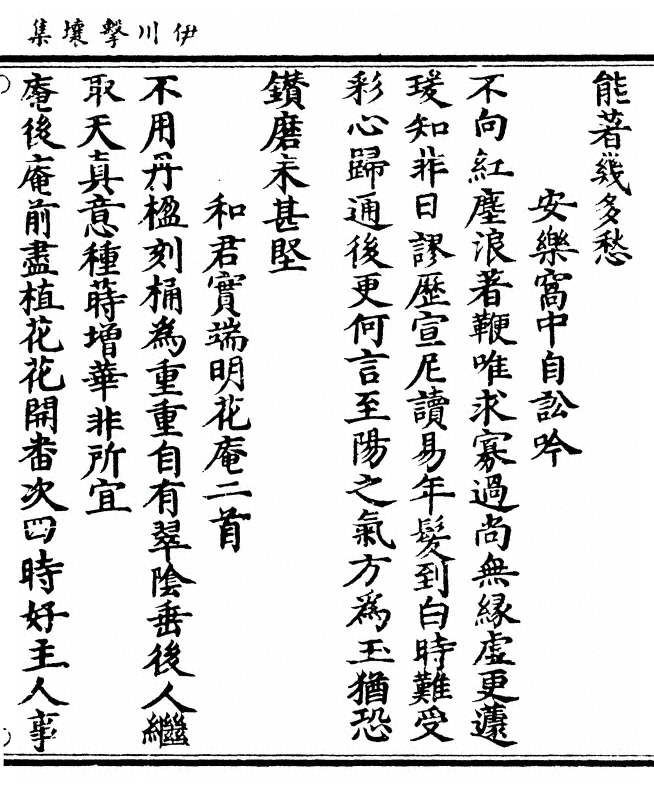 伊川擊壤集
能著幾多愁
安樂窩中自訟吟
不向紅塵浪著鞭唯求寡過尚無緣虛更蘧
瑗知非日謬歷宣尼讀易年髮到白時難受
彩心歸通後更何言至陽之氣方為玉猶恐
鑚磨未甚堅
和君實端明花庵二首
不用丹楹刻桷為重重自有翠陰垂後人繼
取天真意種蒔增華非所宜
庵後庵前盡植花花開番次四時好主人事